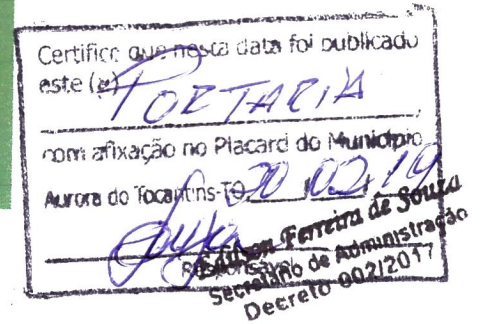 Certifico que nesta data foi publicado
este (a) PORTARIA
com afixação no Placard do Município
Aurora do Tocantins-TO, 20 / 02 / 19
Responsável
Edilson Ferreira de Souza
Secretário de Administração
Decreto 002/2017